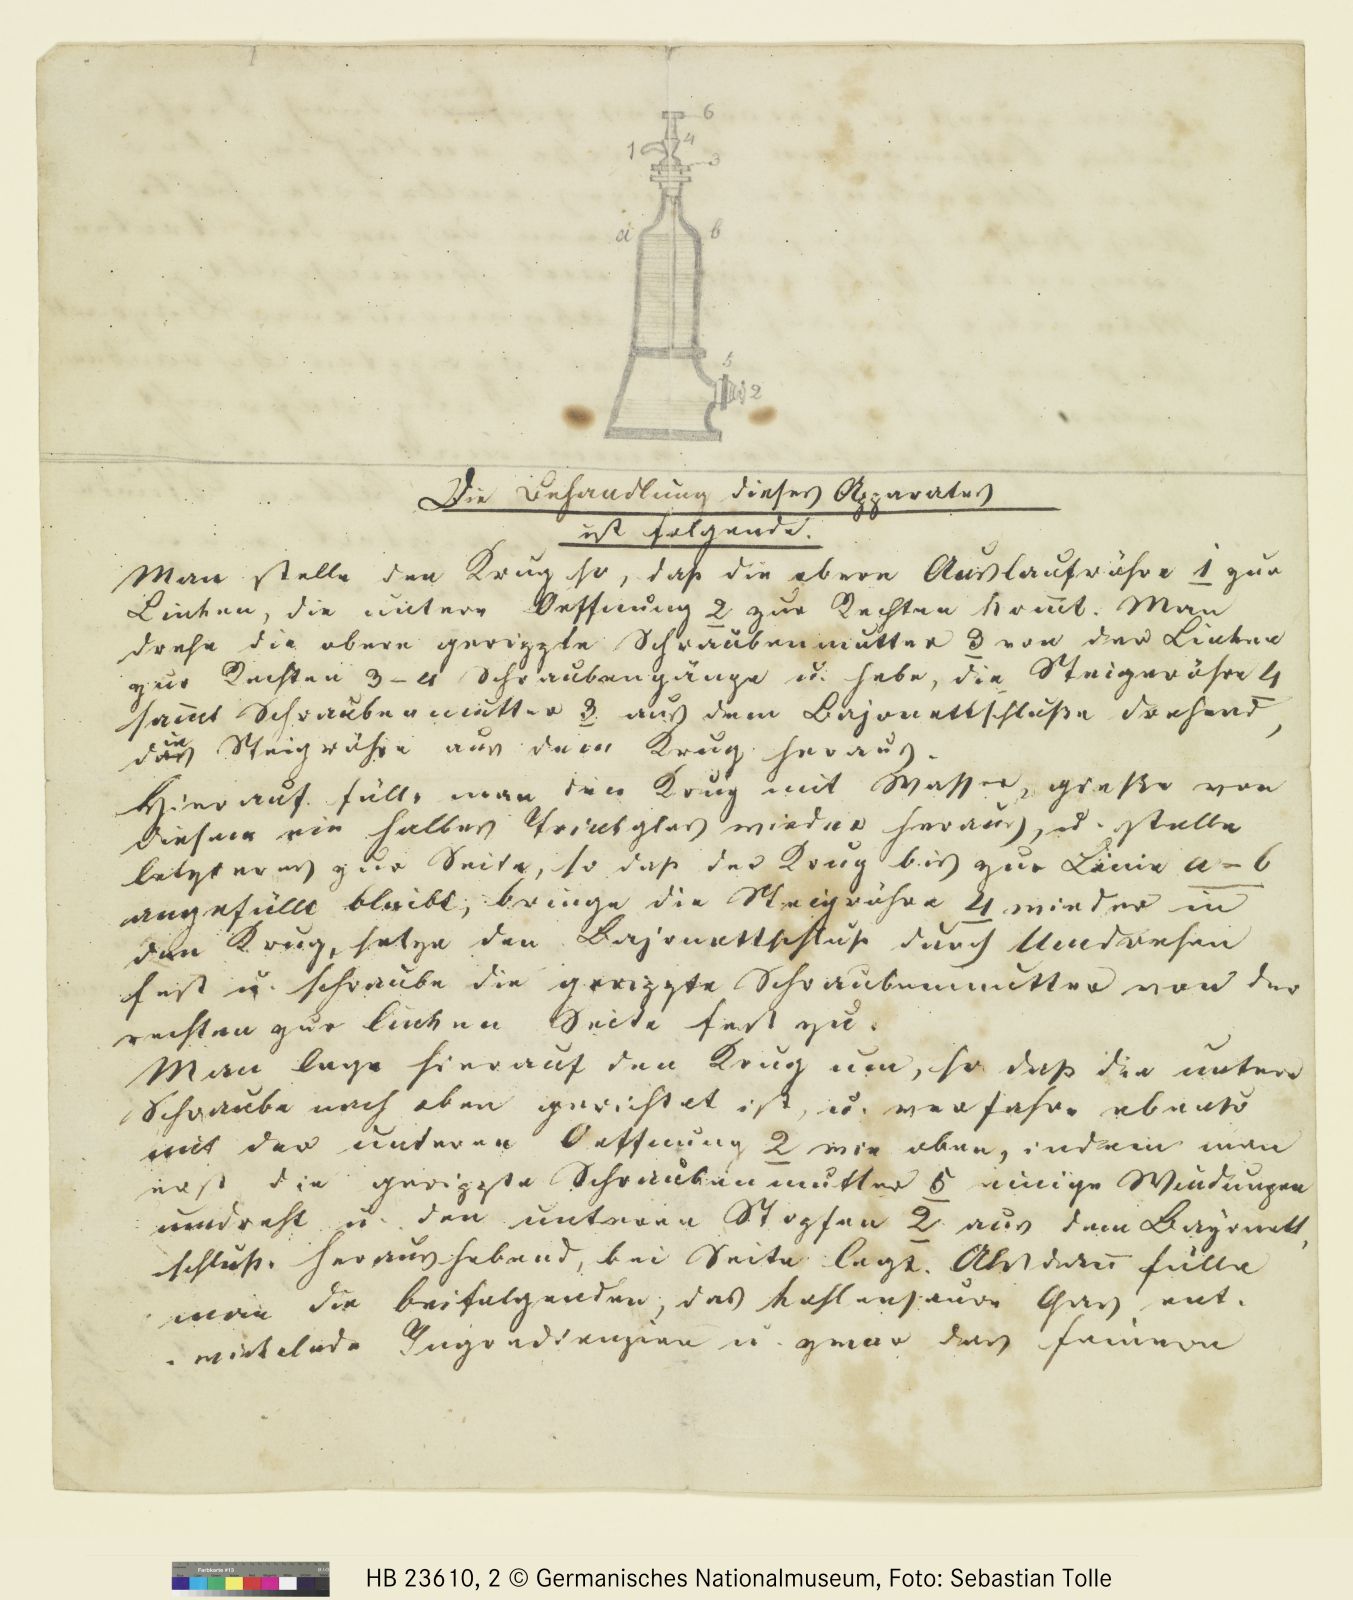 6
1 4
3
a b
5
2
Die Behandlung dieses Apparates
ist folgende.
Man stelle den Krug so, daß die obere Auslaufröhre 1 zur
Linken, die untere Oeffnung 2 zur Rechten kom̄t. Man
drehe die obere gerippte Schraubenmutter 3 von der Linken
zur Rechten 3–4 Schraubengänge u. hebe, die Steigeröhre 4
sam̄t Schraubenmutter 3 aus dem Bajonettschluße drehend,
die Steigröhre aus dem Krug heraus.
Hierauf fülle man den Krug mit Wasser, gieße von
diesem ein halbes Trinkglas wieder heraus, u. stelle
letzteres zur Seite, so daß der Krug bis zur Linie a–b
angefüllt bleibt, bringe die Steigröhre 4 wieder in
den Krug, setze den Bajonettschluß durch Umdrehen
fest u. schraube die gerippte Schraubenmutter von der
rechten zur linken Seite fest zu.
Man lege hierauf den Krug um, so daß die untere
Schraube nach oben gerichtet ist, u. verfahre ebenso
mit der unteren Oeffnung 2 wie oben, indem man
erst die gerippte Schraubenmutter 5 einige Windungen
umdreht u. den unteren Stopfen 2 aus dem Bayonett,
schluß. heraushebend, bei Seite legt. Alsdan̄ fülle
man die beifolgenden, das kohlensaure Gas ent-
-wickelnde Ingredienzien u. zwar das feinere
HB 23610, 2 © Germanisches Nationalmuseum, Foto: Sebastian Tolle